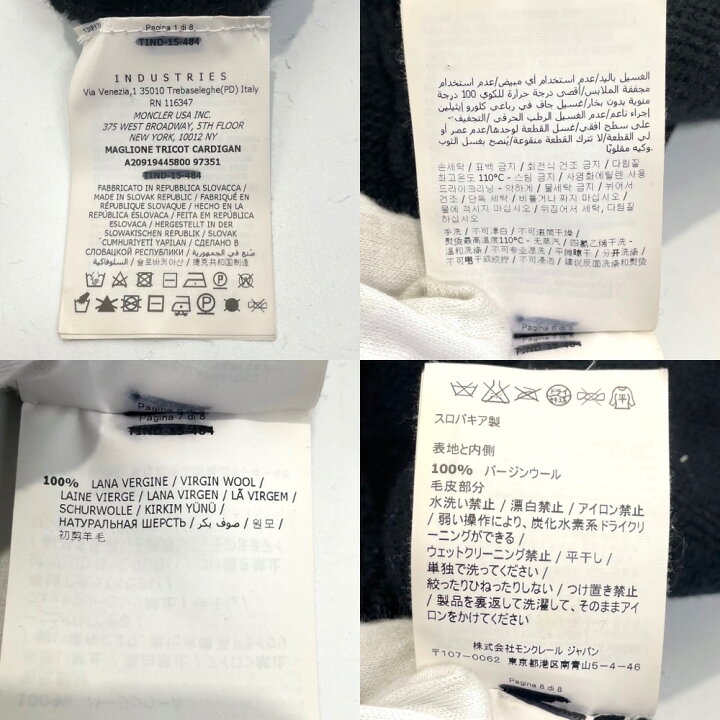 Pagina 1 di 8
TIND-15-484
INDUSTRIES
Via Venezia,1 35010 Trebaseleghe(PD) Italy
RN 116347
MONCLER USA INC.
375 WEST BROADWAY, 5TH FLOOR
NEW YORK, 10012 NY
MAGLIONE TRICOT CARDIGAN
A20919445800 97351
TIND-15-484
FABBRICATO IN REPUBBLICA SLOVACCA /
MADE IN SLOVAK REPUBLIC / FABRIQUÉ EN
RÉPUBLIQUE SLOVAQUE / HECHO EN LA
REPÚBLICA ESLOVACA / FEITA EM REPÚBLICA
ESLOVACA / HERGESTELLT IN DER
SLOWAKISCHEN REPUBLIK / SLOVAK
CUMHURIYETI YAPILAN / СДЕЛАНО В
СЛОВАЦКОЙ РЕСПУБЛИКИ / صنع في الجمهورية
السلوفاكية / 슬로바키아산 / 捷克共和国制造
الغسيل باليد/عدم استخدام أي مبيض/عدم استخدام
مجففة الملابس/أقصى درجة حرارة للكوي 100 درجة
مئوية بدون بخار/غسيل جاف في رباعي كلورو إيثيلين
إجراء ناعم/عدم الغسيل الرطب الحرفي /التجفيف
على سطح افقي/غسل القطعة لوحدها/عدم عصر أو
لي القطعة/لا تترك القطعة منقوعة/يُنصح بغسل الثوب
وكيه مقلوبًا
손세탁 / 표백 금지 / 회전식 건조 금지 / 다림질
최고온도 110°C - 스팀 금지 / 사염화에틸렌 사용
드라이크리닝 - 약하게 / 물세탁 금지 / 뉘어서
건조 / 단독 세탁 / 비틀거나 짜지 마십시오 /
물에 적시지 마십시오 / 뒤집어서 세탁, 다림질
하십시오
手洗 / 不可漂白 / 不可滚筒干燥 /
熨烫最高温度110°C - 无蒸汽 / 四氯乙烯干洗 -
温和洗涤 / 不可专业湿洗 / 平摊晾干 / 分开洗涤 /
不可甩干或绞拧 / 不可浸泡 / 建议反面洗涤和熨烫
Pagina 6 di 8
Pagina 7 di 8
TIND-15-484
Pagina 6 di 8
Pagina 7 di 8
TIND-15-484
100% LANA VERGINE / VIRGIN WOOL /
LAINE VIERGE / LANA VIRGEN / LÃ VIRGEM /
SCHURWOLLE / KIRKIM YÜNÜ /
НАТУРАЛЬНАЯ ШЕРСТЬ / صوف بكر / 원모 /
初剪羊毛
ドライ
平
スロバキア製
表地と内側
100% バージンウール
毛皮部分
水洗い禁止 / 漂白禁止 / アイロン禁止
/ 弱い操作により、炭化水素系ドライクリ
ーニングができる /
ウェットクリーニング禁止 / 平干し /
単独で洗ってください /
絞ったりひねったりしない / つけ置き禁止
/ 製品を裏返して洗濯して、そのままアイ
ロンをかけてください
株式会社モンクレール ジャパン
〒107-0062 東京都港区南青山5-4-46
Pagina 8 di 8